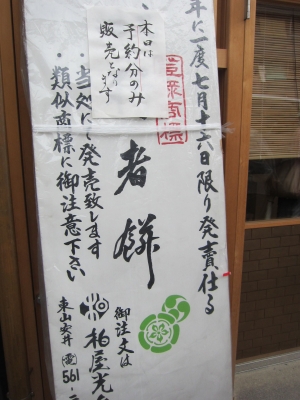 年に一度七月十六日限り発賣仕る
登録商標
者餅
本日は
予約分のみ
販売となります
・当処にて発売致します
・類似商標に御注意下さい
御注文は
柏屋光
東山安井 電 561-